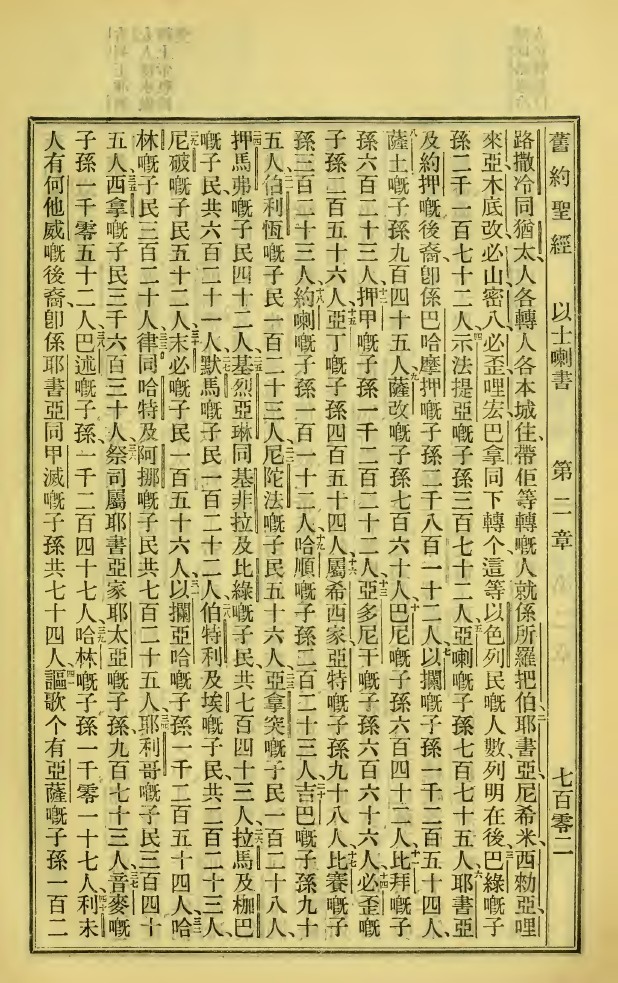 舊約聖經 以士喇書 第二章 七百零二
路撒冷同猶太人各轉人各本城住、帶佢等轉嘅人就係所羅把伯耶書亞、尼希米、西勑亞、哩
來亞、木底改、必山、密八、必歪、哩宏、巴拿同下轉个這等以色列民嘅人數列明在後、巴綠嘅子
孫二千一百七十二人、示法提亞嘅子孫三百七十二人、亞喇嘅子孫七百七十五人、耶書亞
及約押嘅後裔卽係巴哈摩押嘅子孫二千八百一十二人、以攔嘅子孫一千二百五十四人、
薩土嘅子孫九百四十五人、薩改嘅子孫七百六十人、巴尼嘅子孫六百四十二人、比拜嘅子
孫六百二十三人、押甲嘅子孫一千二百二十二人、亞多尼干嘅子孫六百六十六人、必歪嘅
子孫二百五十六人、亞丁嘅子孫四百五十四人、屬希西家亞特嘅子孫九十八人、比賽嘅子
孫三百二十三人、約喇嘅子孫一百一十二人、哈順嘅子孫二百二十三人、吉巴嘅子孫九十
五人、伯利恆嘅子民一百二十三人、尼陀法嘅子民五十六人、亞拿突嘅子民一百二十八人、
押馬弗嘅子民四十二人、基烈亞琳同基非拉及比綠嘅子民共七百四十三人、拉馬及枷巴
嘅子民共六百二十一人、默馬嘅子民一百二十二人、伯特利及埃嘅子民共二百二十三人、
尼破嘅子民五十二人、末必嘅子民一百五十六人、以攔亞哈嘅子孫一千二百五十四人、哈
林嘅子民三百二十人、律同哈特及阿挪嘅子民共七百二十五人、耶利哥嘅子民三百四十
五人、西拿嘅子民三千六百三十人、祭司屬耶書亞家耶太亞嘅子孫九百七十三人、音麥嘅
子孫一千零五十二人、巴述嘅子孫一千二百四十七人、哈林嘅子孫一千零一十七人、利未
人有何他威嘅後裔、卽係耶書亞同甲滅嘅子孫共七十四人、謳歌个有亞薩嘅子孫一百二